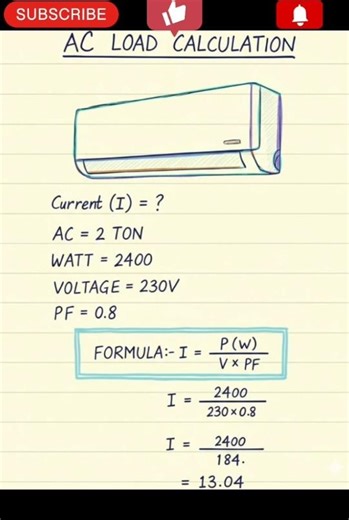 SUBSCRIBE
AC LOAD CALCULATION
Current (I) = ?
AC = 2 TON
WATT = 2400
VOLTAGE = 230V
PF = 0.8
FORMULA:- I = P(W) / V × PF
I = 2400 / 230×0.8
I = 2400 / 184.
= 13.04